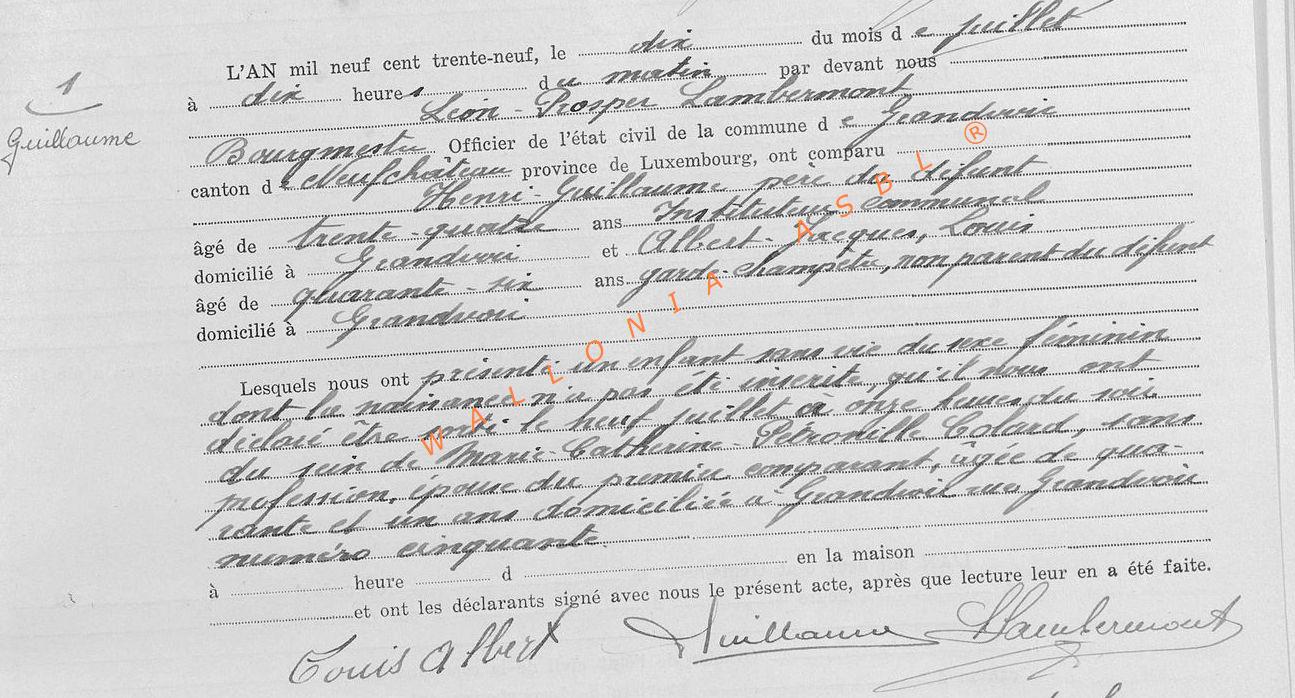 1
Guillaume
L'AN mil neuf cent trente-neuf, le dix du mois de juillet
à dix heures du matin par devant nous
Léon - Prosper Lambermont
Bourgmestre Officier de l'état civil de la commune de Grandvoir
canton de Neufchâteau province de Luxembourg, ont comparu
Henri - Guillaume père du défunt
âgé de trente-quatre ans Instituteur communal
domicilié à Grandvoir et Albert - Jacques, Louis
âgé de quarante-six ans garde-champêtre, non parent du défunt
domicilié à Grandvoir
Lesquels nous ont présenté un enfant sans vie du sexe féminin
dont la naissance n'a pas été inscrite, qu'il nous ont
déclaré être sorti le neuf juillet à onze heures du soir
du sein de Marie-Catherine-Pétronille Colard, sans
profession, épouse du premier comparant, âgée de qua-
rante et un ans domiciliée à Grandvoir rue Grandvoir
numéro cinquante
à heure d en la maison
et ont les déclarants signé avec nous le présent acte, après que lecture leur en a été faite.
Louis Albert Guillaume Lambermont
WALLONIA ASBL ®